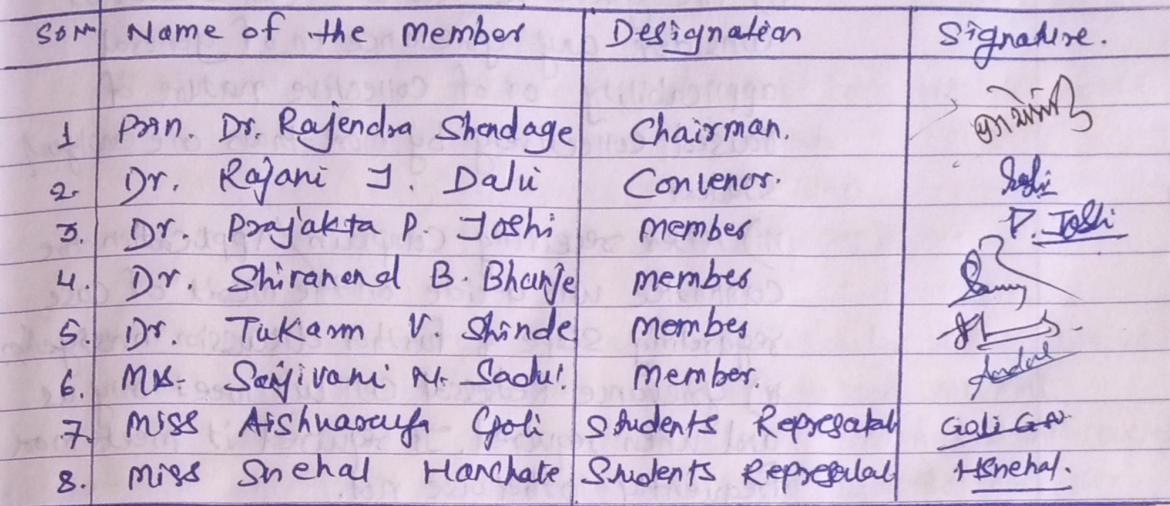 SONN Name of the Member Designation Signature.
1 Prin. Dr. Rajendra Shendage Chairman.
2 Dr. Rajani J. Dalvi Convenor.
3. Dr. Prajakta P. Joshi Member P. Joshi
4. Dr. Shiranand B. Bhanje Member
5. Dr. Tukarm V. Shinde Member
6. Mrs. Sanjivani N. Sadul Member.
7. Miss Aishwarya Goli Students Goli
8. Miss Snehal Hanchate Students HSnehal.